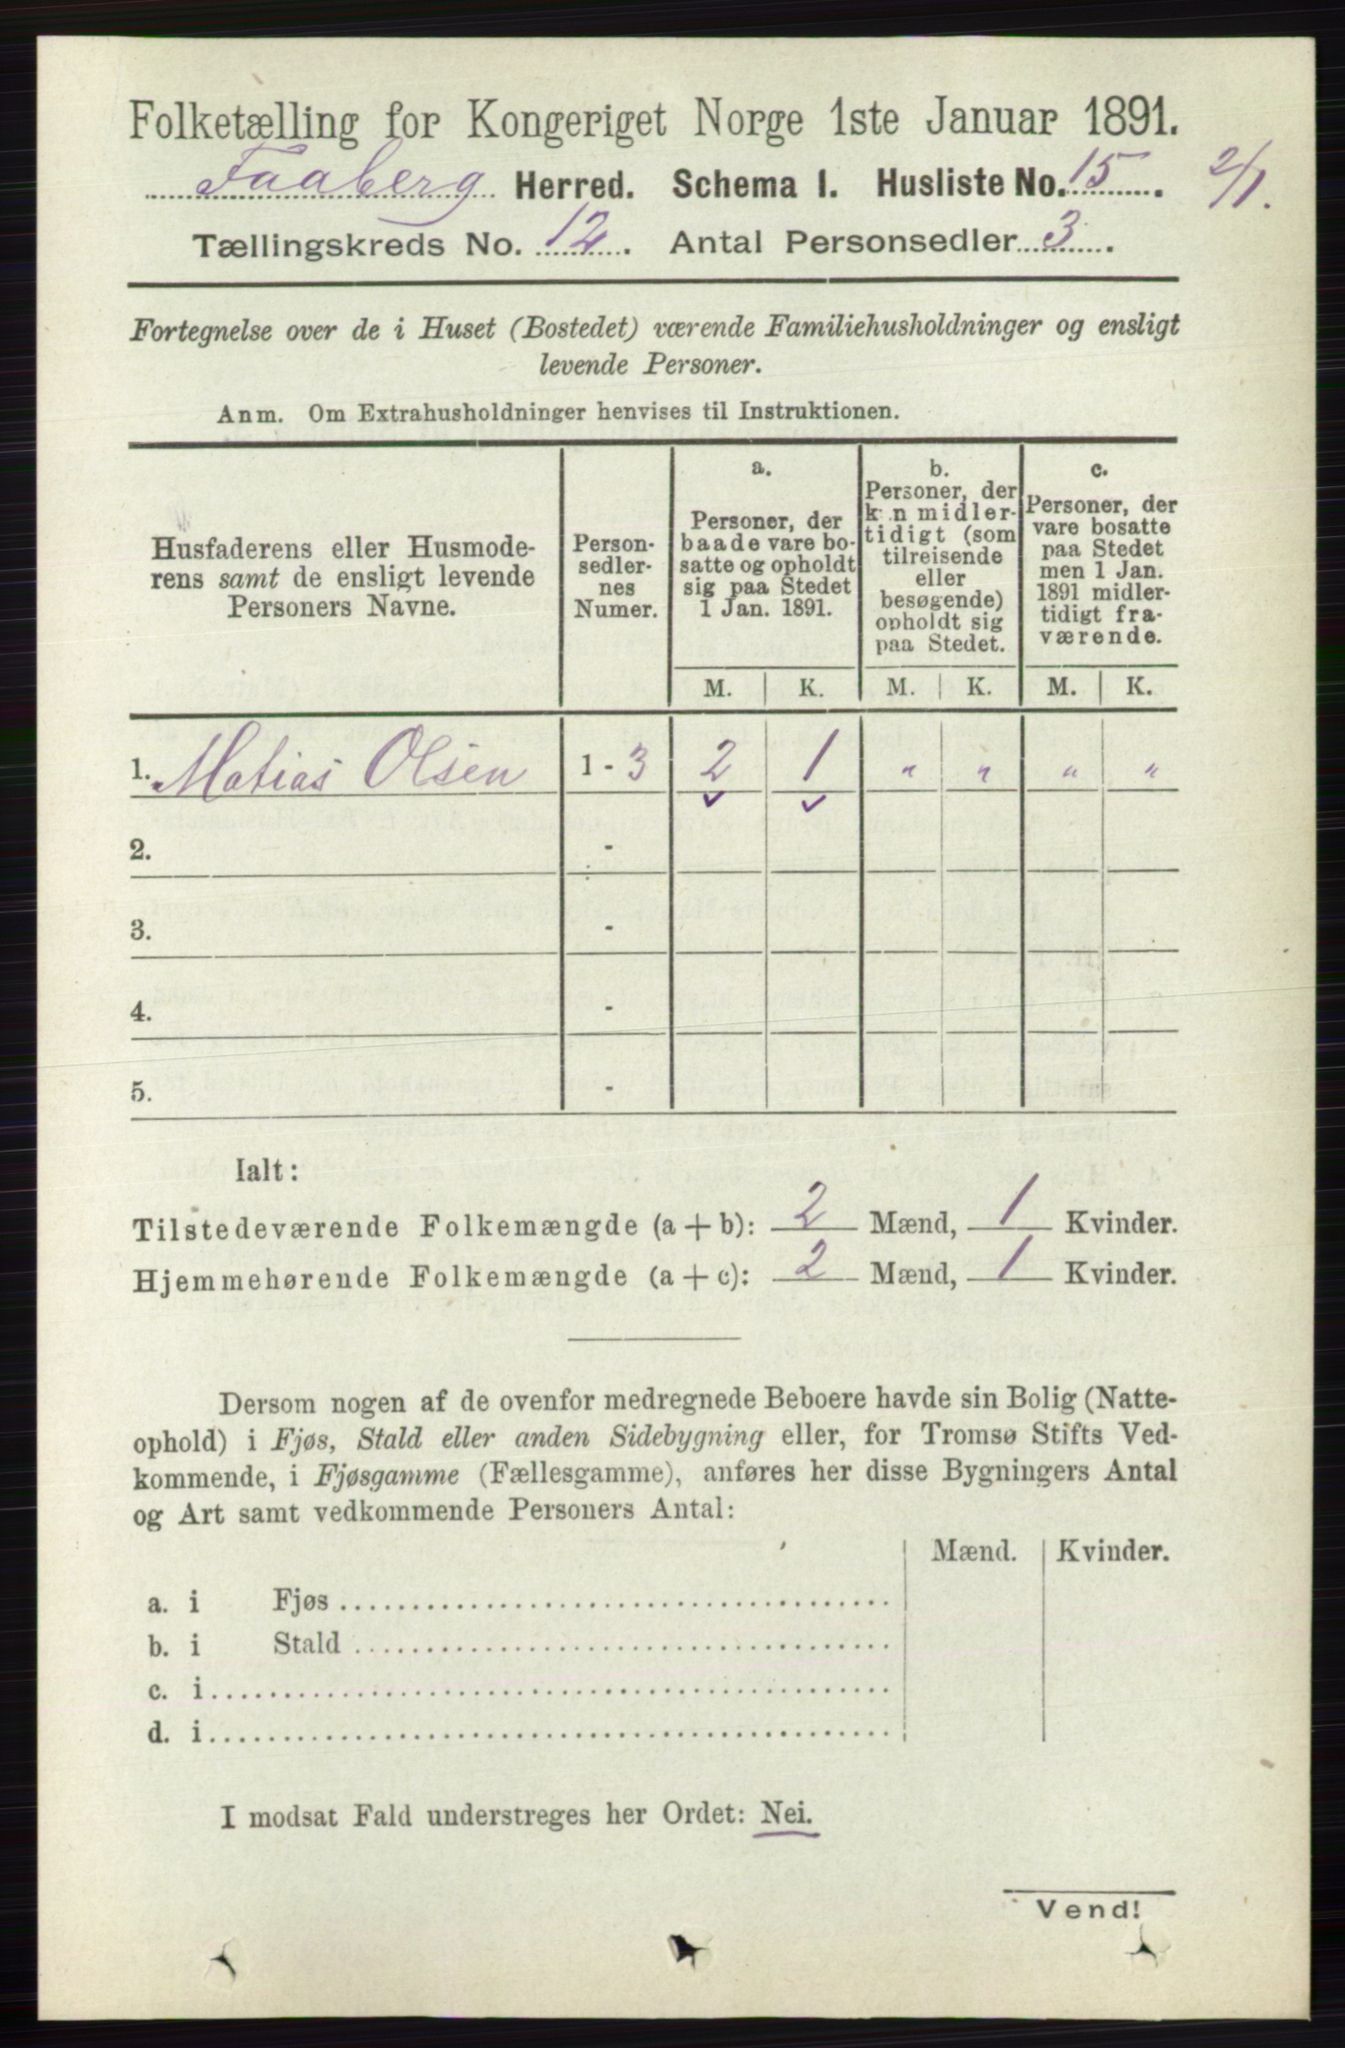 Folketælling for Kongeriget Norge 1ste Januar 1891.
Faaberg Herred. Schema I. Husliste No. 15. 2/1.
Tællingskreds No. 12. Antal Personsedler 3.
Fortegnelse over de i Huset (Bostedet) værende Familiehusholdninger og ensligt
levende Personer.
Anm. Om Extrahusholdninger henvises til Instruktionen.
Husfaderens eller Husmode-
rens samt de ensligt levende
Personers Navne.
Person-
sedler-
nes
Numer.
a.
Personer, der
baade vare bo-
satte og opholdt
sig paa Stedet
1 Jan. 1891.
b.
Personer, der
kun midler-
tidigt (som
tilreisende
eller
besøgende)
opholdt sig
paa Stedet.
c.
Personer, der
vare bosatte
paa Stedet
men 1 Jan.
1891 midler-
tidigt fra-
værende.
M. K. M. K. M. K.
1. Matias Olsen 1 - 3 2 1 „ „ „ „
2. -
3. -
4. -
5. -
Ialt:
Tilstedeværende Folkemængde (a + b): 2 Mænd, 1 Kvinder.
Hjemmehørende Folkemængde (a + c): 2 Mænd, 1 Kvinder.
Dersom nogen af de ovenfor medregnede Beboere havde sin Bolig (Natte-
ophold) i Fjøs, Stald eller anden Sidebygning eller, for Tromsø Stifts Ved-
kommende, i Fjøsgamme (Fællesgamme), anføres her disse Bygningers Antal
og Art samt vedkommende Personers Antal:
Mænd. Kvinder.
a. i Fjøs
b. i Stald
c. i
d. i
I modsat Fald understreges her Ordet: Nei.
Vend!